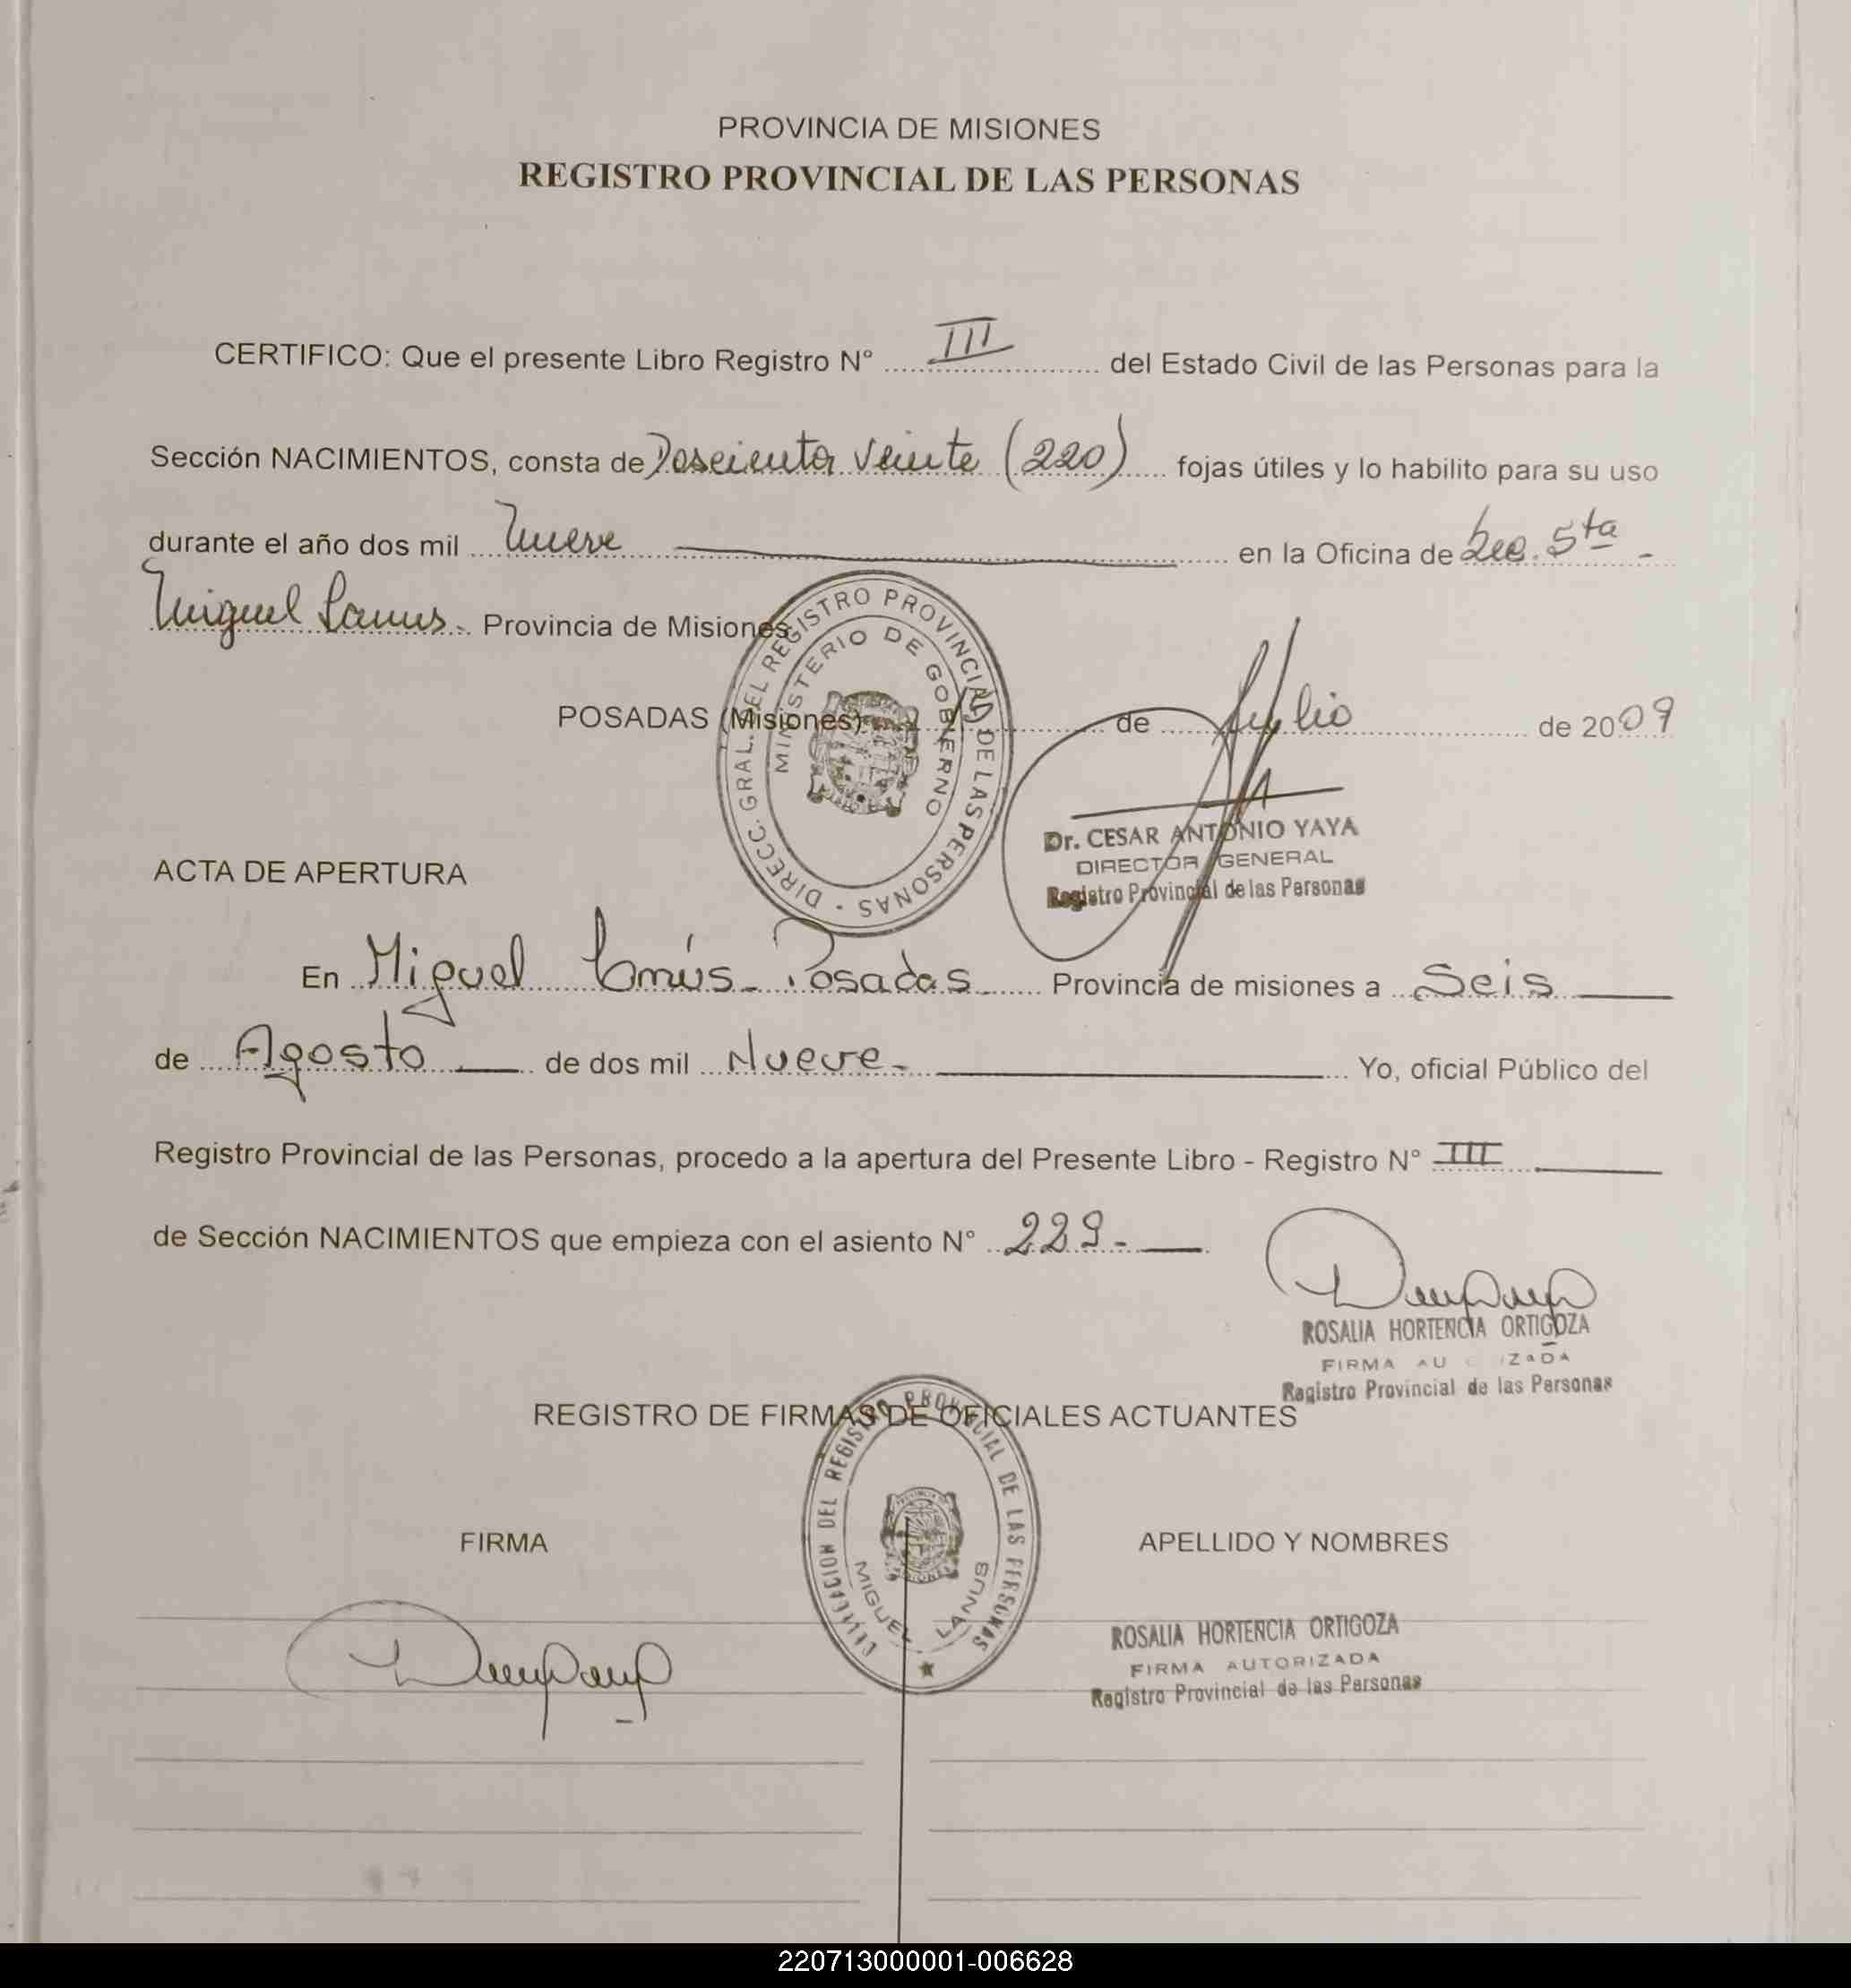 PROVINCIA DE MISIONES
REGISTRO PROVINCIAL DE LAS PERSONAS
CERTIFICO: Que el presente Libro Registro N° III del Estado Civil de las Personas para la
Sección NACIMIENTOS, consta de Doscientos Veinte (220) fojas útiles y lo habilito para su uso
durante el año dos mil nueve en la Oficina de Sec. 5ta -
Miguel Lanus - Provincia de Misiones
POSADAS (Misiones) de Julio de 2009
DIRECC. GRAL. DEL REGISTRO PROVINCIAL DE LAS PERSONAS -
MINISTERIO DE GOBIERNO
Dr. CESAR ANTONIO YAYA
DIRECTOR GENERAL
Registro Provincial de las Personas
ACTA DE APERTURA
En Miguel Lanús - Posadas Provincia de misiones a Seis
de Agosto de dos mil Nueve - Yo, oficial Público del
Registro Provincial de las Personas, procedo a la apertura del Presente Libro - Registro N° III
de Sección NACIMIENTOS que empieza con el asiento N° 229 -
ROSALIA HORTENCIA ORTIGOZA
FIRMA AU IZADA
Registro Provincial de las Personas
REGISTRO DE FIRMAS DE OFICIALES ACTUANTES
DELEGACION DEL REGISTRO PROVINCIAL DE LAS PERSONAS
MIGUEL LANUS
FIRMA APELLIDO Y NOMBRES
ROSALIA HORTENCIA ORTIGOZA
FIRMA AUTORIZADA
Registro Provincial de las Personas
220713000001-006628